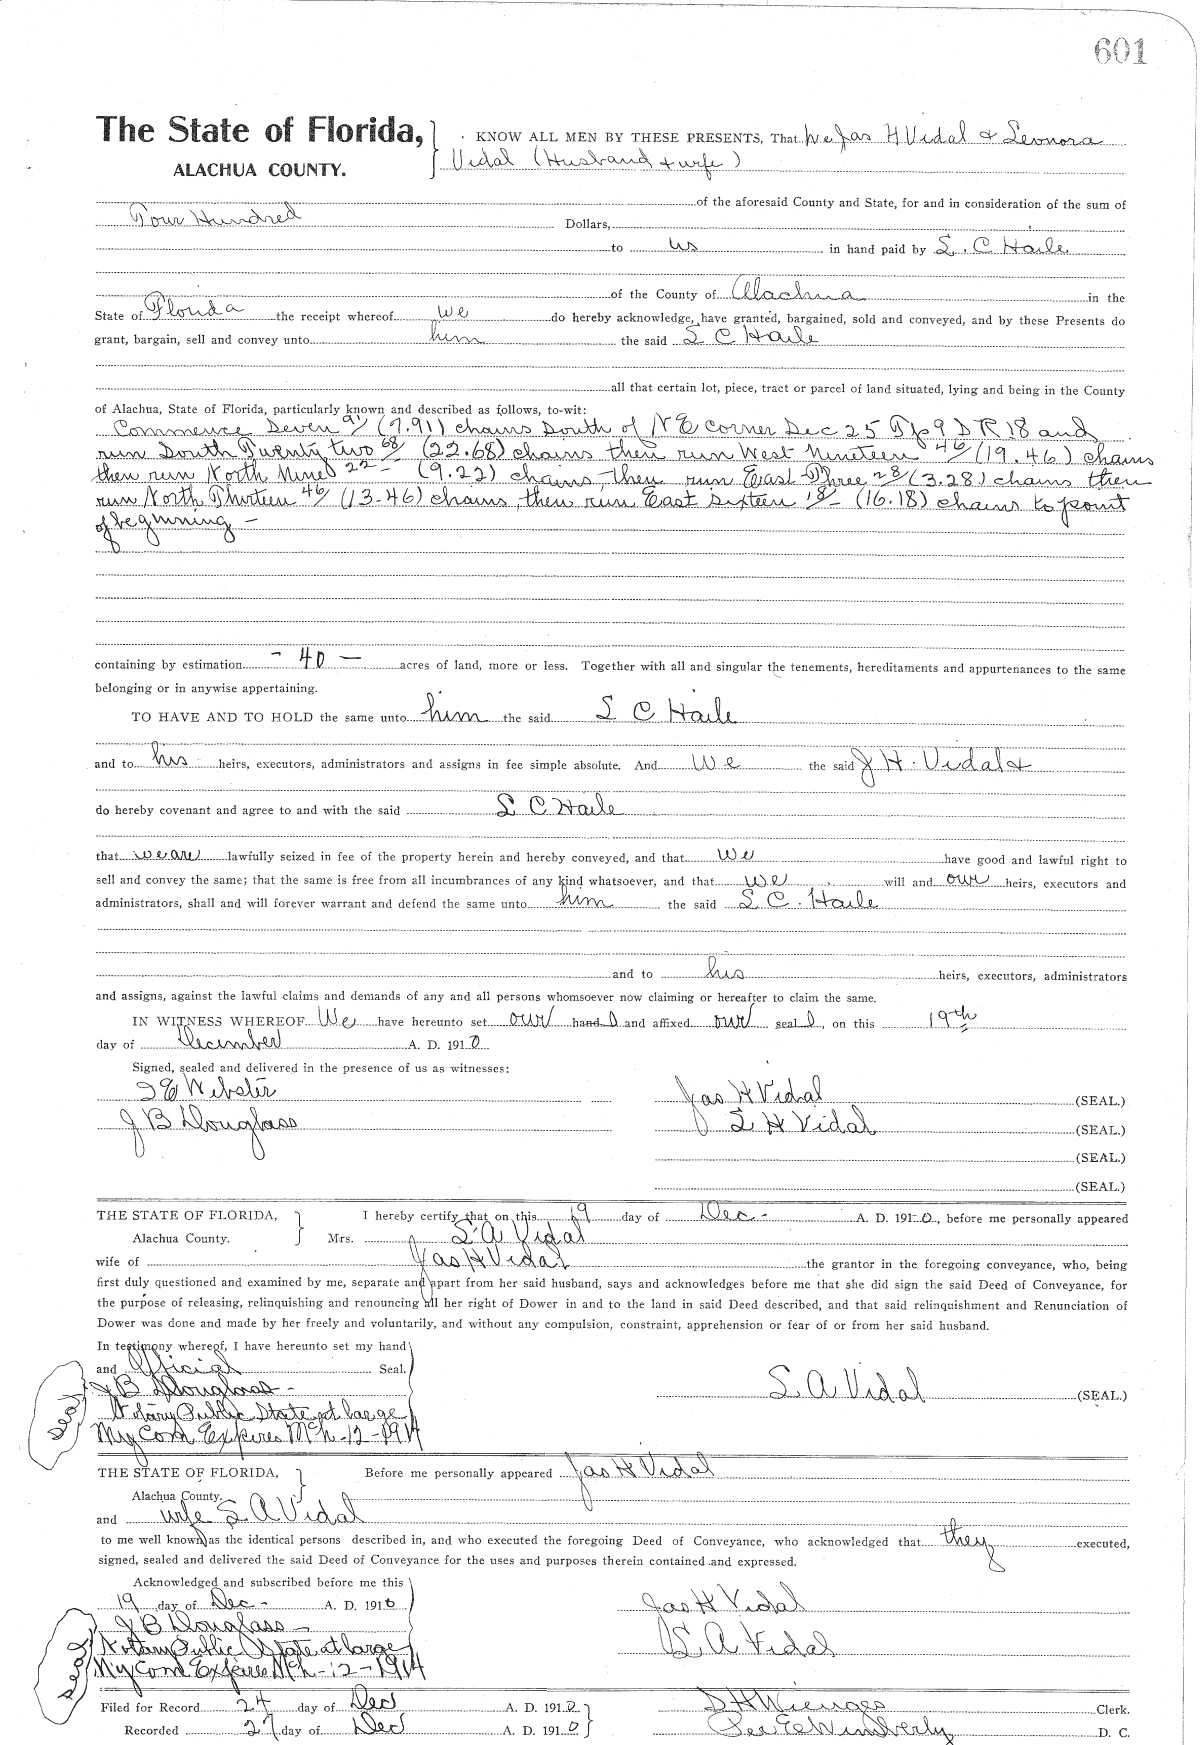 601
The State of Florida, KNOW ALL MEN BY THESE PRESENTS, That We Jas H Vidal & Leonora
ALACHUA COUNTY. Vidal (Husband & wife)
of the aforesaid County and State, for and in consideration of the sum of
Four Hundred Dollars,
to us in hand paid by L. C Haile
of the County of Alachua in the
State of Florida the receipt whereof we do hereby acknowledge, have granted, bargained, sold and conveyed, and by these Presents do
grant, bargain, sell and convey unto him the said L C Haile
all that certain lot, piece, tract or parcel of land situated, lying and being in the County
of Alachua, State of Florida, particularly known and described as follows, to-wit:
Commence Seven 91/ (7.91) chains South of N E corner Sec 25 Tp 9 S R 18 and
run South Twenty two 68/ (22.68) chains then run West Nineteen 46/ (19.46) chains
then run North Nine 22/- (9.22) chains, then run East Three 28/ (3.28) chains then
run North Thirteen 46/ (13-46) chains, then run East Sixteen 18/- (16.18) chains to point
of beginning -
containing by estimation - 40 - acres of land, more or less. Together with all and singular the tenements, hereditaments and appurtenances to the same
belonging or in anywise appertaining.
TO HAVE AND TO HOLD the same unto him the said L C Haile
and to his heirs, executors, administrators and assigns in fee simple absolute. And We the said J H. Vidal &
do hereby covenant and agree to and with the said L C Haile
that we are lawfully seized in fee of the property herein and hereby conveyed, and that we have good and lawful right to
sell and convey the same; that the same is free from all incumbrances of any kind whatsoever, and that we will and our heirs, executors and
administrators, shall and will forever warrant and defend the same unto him the said L C. Haile
and to his heirs, executors, administrators
and assigns, against the lawful claims and demands of any and all persons whomsoever now claiming or hereafter to claim the same.
IN WITNESS WHEREOF We have hereunto set our hands and affixed our seals, on this 19th
day of December A. D. 1910
Signed, sealed and delivered in the presence of us as witnesses:
Webster Jas H Vidal (SEAL.)
J B Douglass L H Vidal (SEAL.)
(SEAL.)
(SEAL.)
THE STATE OF FLORIDA, I hereby certify that on this 19 day of Dec- A. D. 1910, before me personally appeared
Alachua County. Mrs. L A Vidal
wife of Jas H Vidal the grantor in the foregoing conveyance, who, being
first duly questioned and examined by me, separate and apart from her said husband, says and acknowledges before me that she did sign the said Deed of Conveyance, for
the purpose of releasing, relinquishing and renouncing all her right of Dower in and to the land in said Deed described, and that said relinquishment and Renunciation of
Dower was done and made by her freely and voluntarily, and without any compulsion, constraint, apprehension or fear of or from her said husband.
In testimony whereof, I have hereunto set my hand
and Official Seal.
J B Douglass - L A Vidal (SEAL.)
Seal Notary Public State at large
My Com Expires Mch-12-1914
THE STATE OF FLORIDA, Before me personally appeared Jas H Vidal
Alachua County.
and wife L A Vidal
to me well known as the identical persons described in, and who executed the foregoing Deed of Conveyance, who acknowledged that they executed,
signed, sealed and delivered the said Deed of Conveyance for the uses and purposes therein contained and expressed.
Acknowledged and subscribed before me this
19 day of Dec- A. D. 1910 Jas H Vidal
J B Douglass -
Seal Notary Public State at large L A Vidal
My Com Expires Mch-12-1914
Filed for Record 24 day of Dec A. D. 1910 S H Wienges Clerk.
Recorded 27 day of Dec A. D. 1910 Geo E Wimberly D. C.